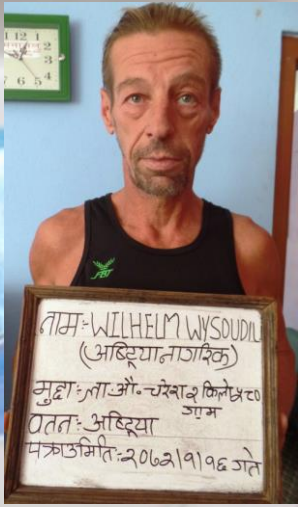 नाम:- WILHELM WYSOUDIL
(अष्ट्रियानागरिक)
मुद्दा:- ला.औ.- चरेश २ किलो ५८०
ग्राम
वतन:- अष्ट्रिया
पक्राउमिति:- २०७२/१/१६ गते